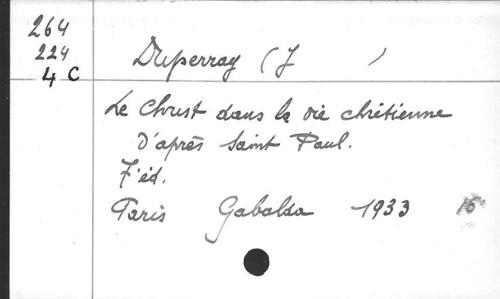 264
224
4 C
Duperray (J )
Le Christ dans la vie chrétienne
D'après Saint Paul.
7'éd.
Paris Gabalda 1933 16°